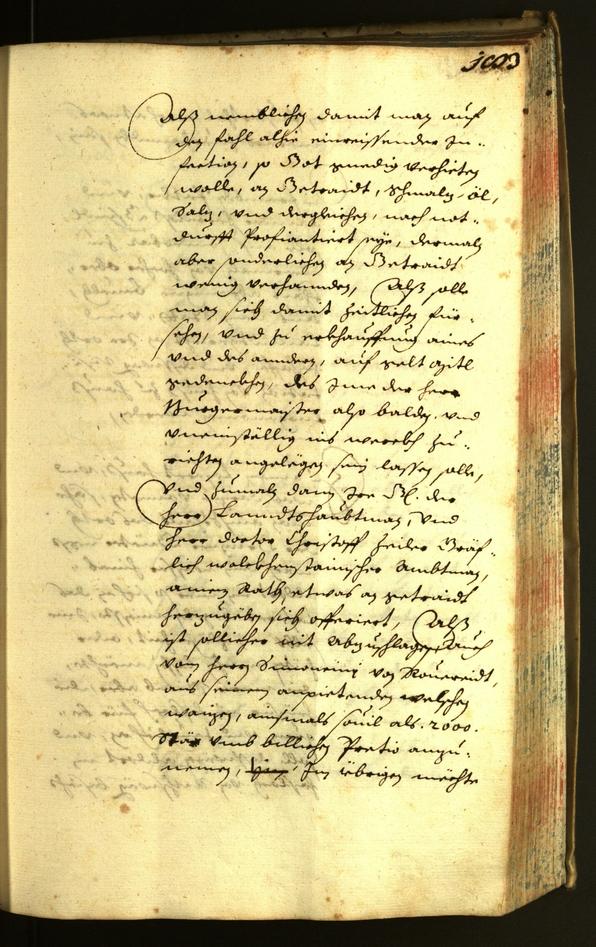 1003
Alß nemblichen damit man auf
den fahl alhie einreissender In-
fection, so Got genedig verhieten
wolle, an Getraidt, Schmalz, öl,
Salz, und dergleichen, nach not-
durfft Profiantiert seye, dermaln
aber sonderlichen an Getraidt
wenig verhannden, Alß solle
man sich damit zeitlichen für-
sehen, und zu erkhauffung aines
und des anndern, auf gelt
gedenckhen, des Ime der herr
Burgermaister also balden, und
uneinställig ins werckh zu-
richten angelegen sein lassen solle,
und zumaln dann Ire Gl. der
herr Lanndtshaubtman, und
herr doctor Christoff Zeiler Gräf-
lich wolckhenstainischer Ambtman,
ainen Rath etwas an getraidt
herzugeben sich offeriert, Alß
ist solliches nit abzuschlagen, auch
von herrn Simonini von Rouereidt,
aus seinem anpietenden welschen
waizen, ainsmals souil als 2000.
Stär umb billichen Pretio anzu-
nemen, Im übrigen mechte